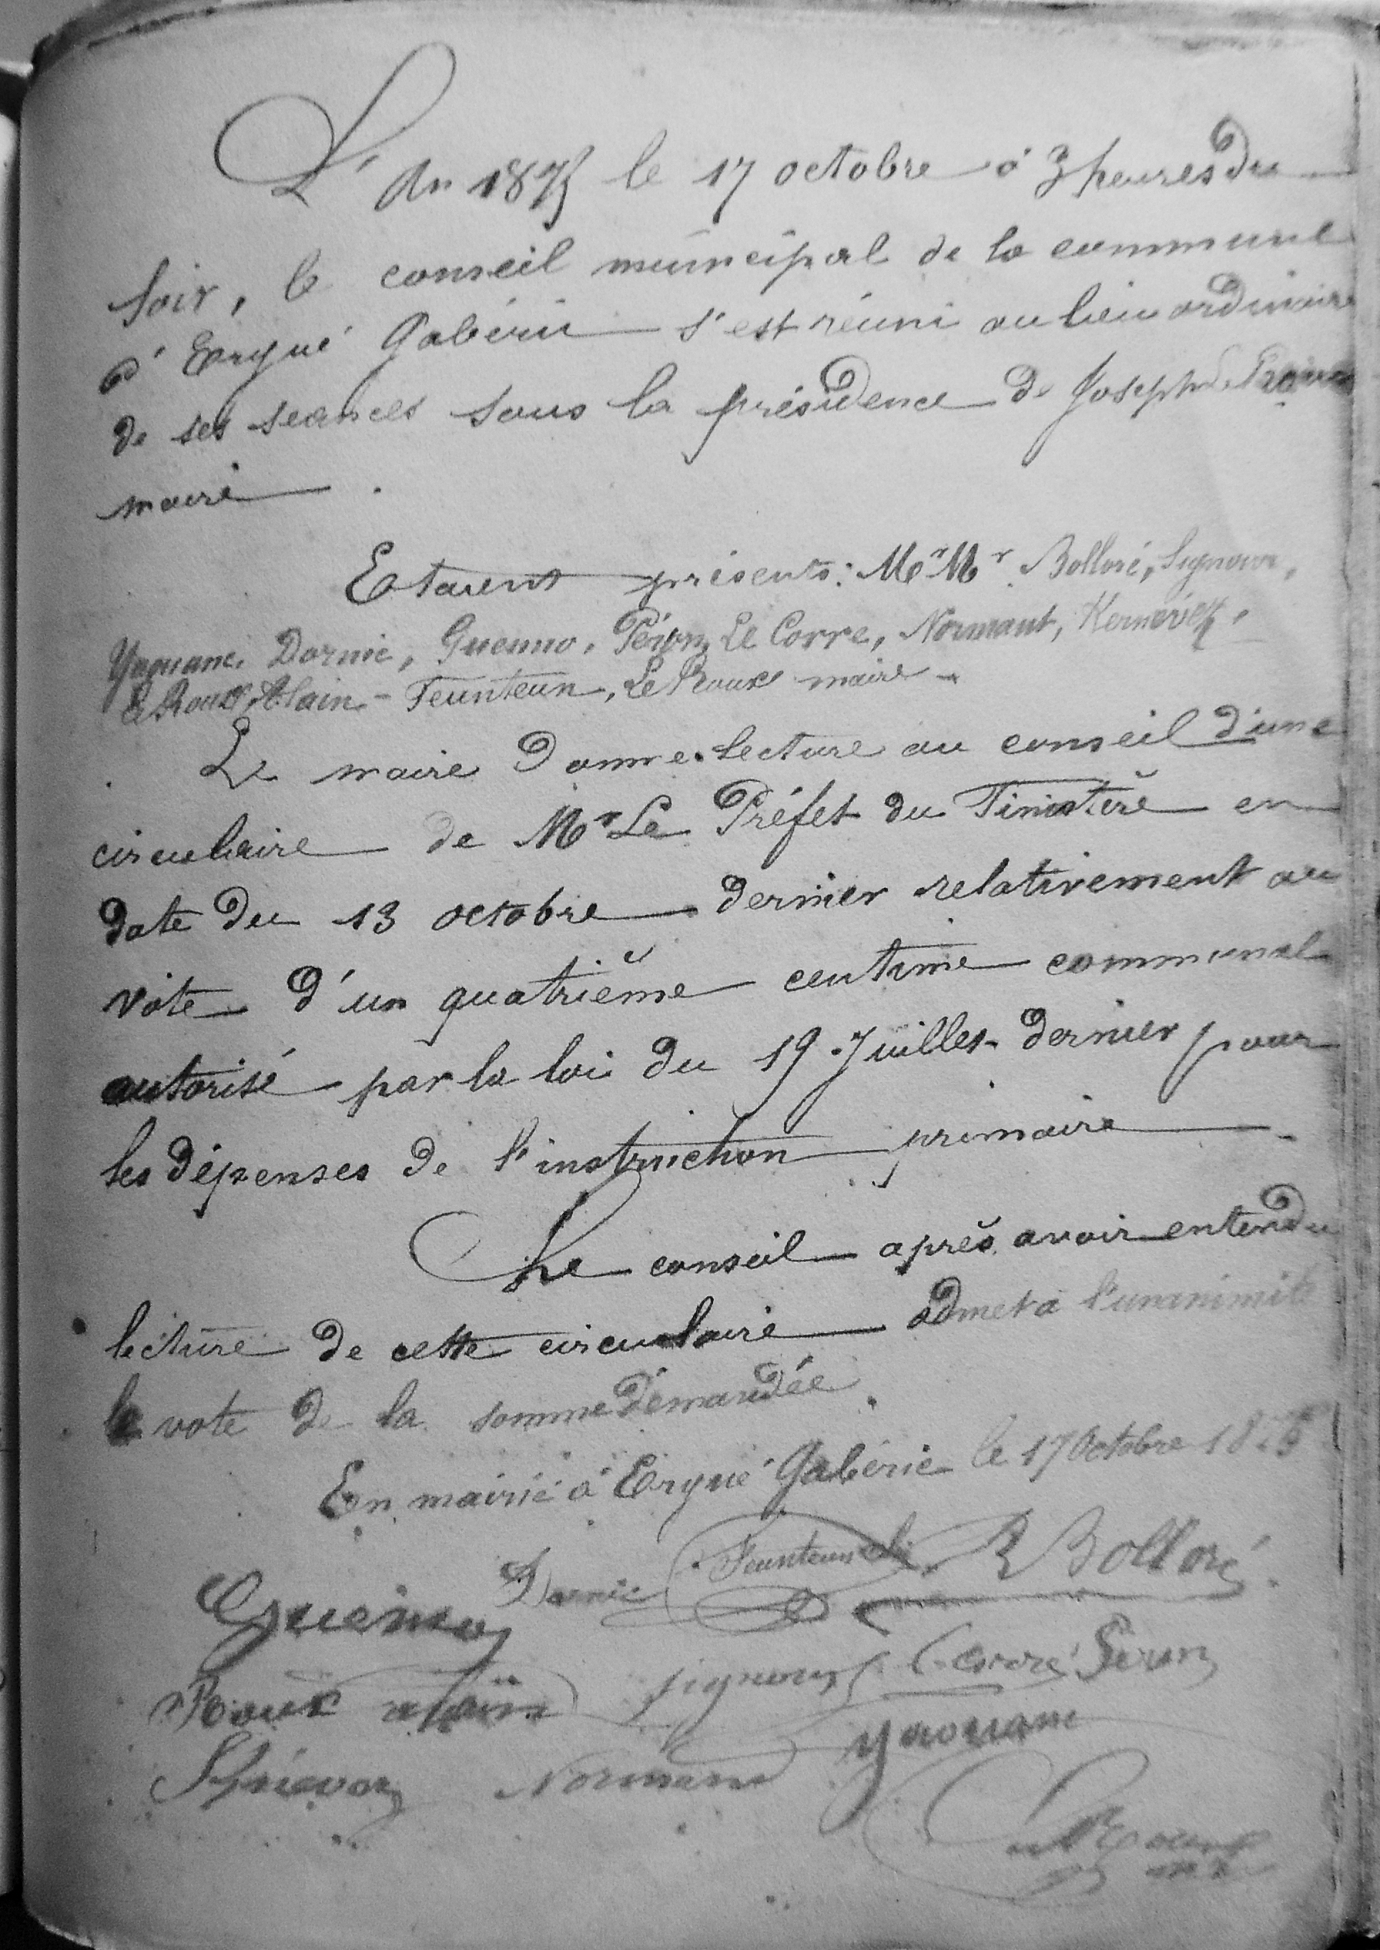 L'An 1875 le 17 octobre à 3 heures du
soir, le conseil municipal de la commune
d'Ergué Gabéric s'est réuni au lieu ordinaire
de ses seances sous la présidence de Joseph
maire.
Etaient présents: Mr Mr Bolloré, Signour,
Yaouanc, Dornic, Guenno, Péron, Le Corre, Normant, Kernevez,
Le Roux Alain - Feunteun, Le Roux maire -
Le maire donne lecture au conseil d'une
circulaire de Mr Le Préfet du Finistère en
date du 13 octobre dernier relativement au
vote d'un quatrième centime communal
autorisé par la loi du 19 Juillet dernier pour
les dépenses de l'instruction primaire.
Le conseil après avoir entendu
lecture de cette circulaire admet à l'unanimité
le vote de la somme demandée.
En mairie à Ergué Gabéric le 17 Octobre 1875
Dornic Feunteun R Bolloré
Guenno
Signour Le Corre Peron
Roux alain
Yaouanc
Normant
Le Roux